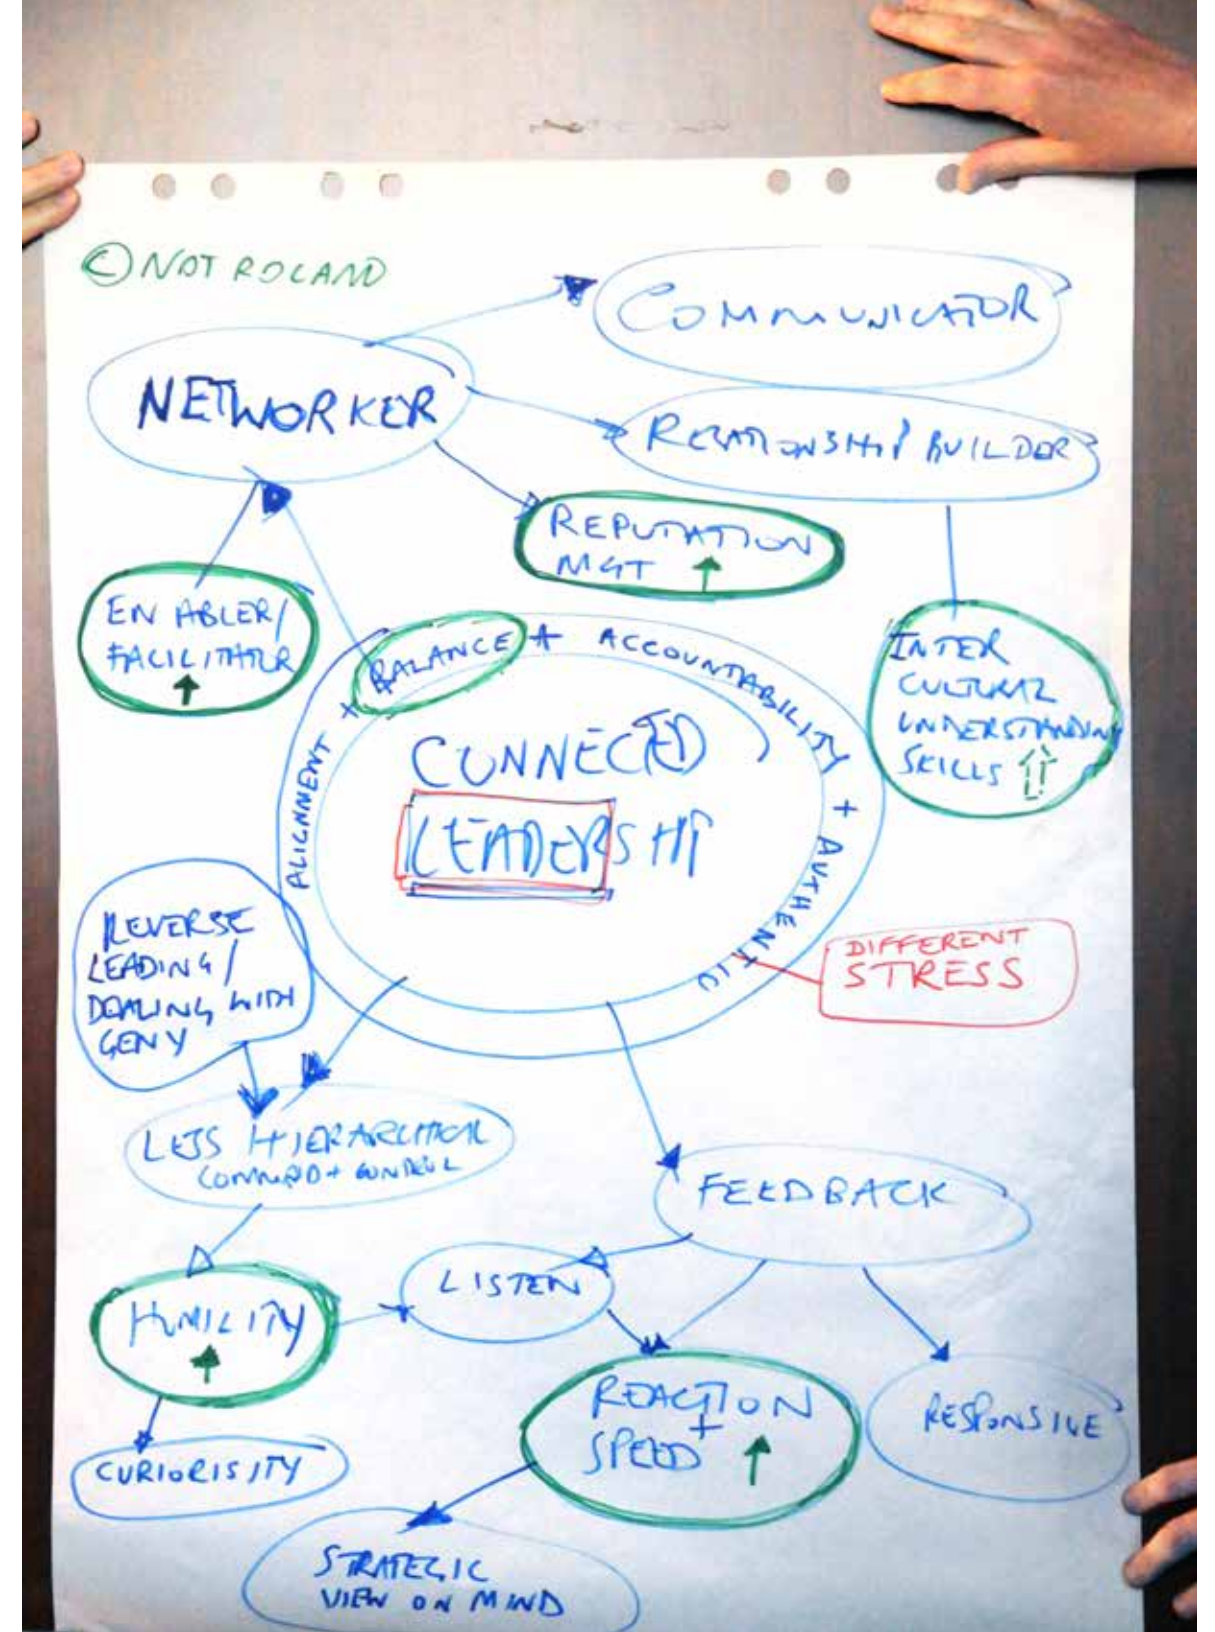 © NOT ROLAND
COMMUNICATOR
NETWORKER
RELATIONSHIP BUILDER
REPUTATION
MGT ↑
ENABLER/
FACILITATOR
↑
INTER
CULTURAL
UNDERSTANDING
SKILLS ⇧
ALIGNMENT + BALANCE + ACCOUNTABILITY + AUTHENTIC
CONNECTED
LEADERSHIP
REVERSE
LEADING/
DEALING WITH
GEN Y
DIFFERENT
STRESS
LESS HIERARCHICAL
COMMAND + CONTROL
FEEDBACK
LISTEN
HUMILITY
↑
REACTION
+
SPEED ↑
RESPONSIVE
CURIORISITY
STRATEGIC
VIEW ON MIND